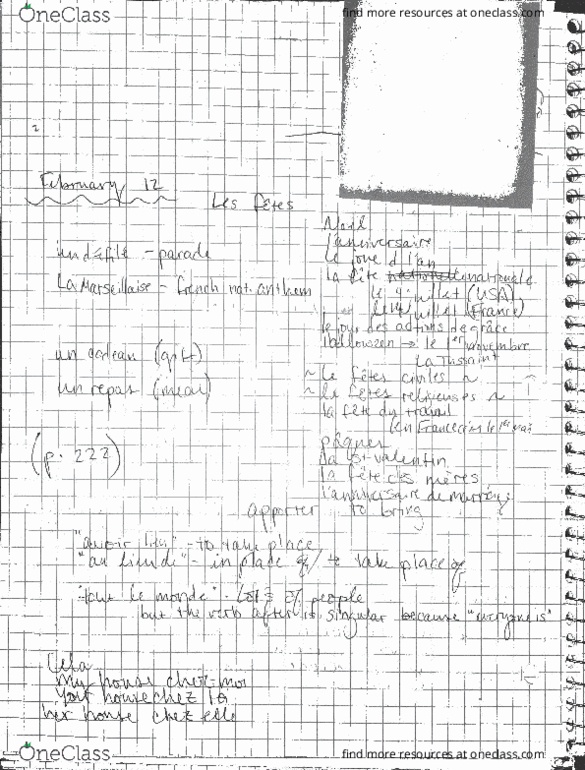 OneClass
find more resources at oneclass.com
February 12
Les fêtes
Noël
l'anniversaire
le jour d l'an
la fête nationale
le 4 juillet (USA)
le 14 juillet (France)
le jour des actions de grâce
Halloween → le 1er novembre
La Toussaint
~ le fêtes civiles ~
~ le fêtes religieuses ~
la fête du travail
en France
pâques
la St-valentin
la fête des mères
l'anniversaire de
un défilé - parade
La Marseillaise - french nat. anthem
un cadeau (gift)
un repas (meal)
(p. 222)
apporter to bring
"avoir lieu" - to take place
"au lieu de" - in place of / to take place of
"tout le monde" - lots of people
but the verb after is singular because "everyone is"
My house chez moi
Your house chez
her house chez elle
OneClass
find more resources at oneclass.com